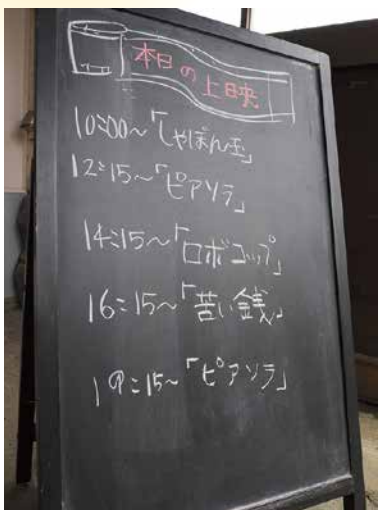 本日の上映
10:00~「しゃぼん玉」
12:15~「ピアソラ」
14:15~「ロボコップ」
16:15~「苦い銭」
19:15~「ピアソラ」